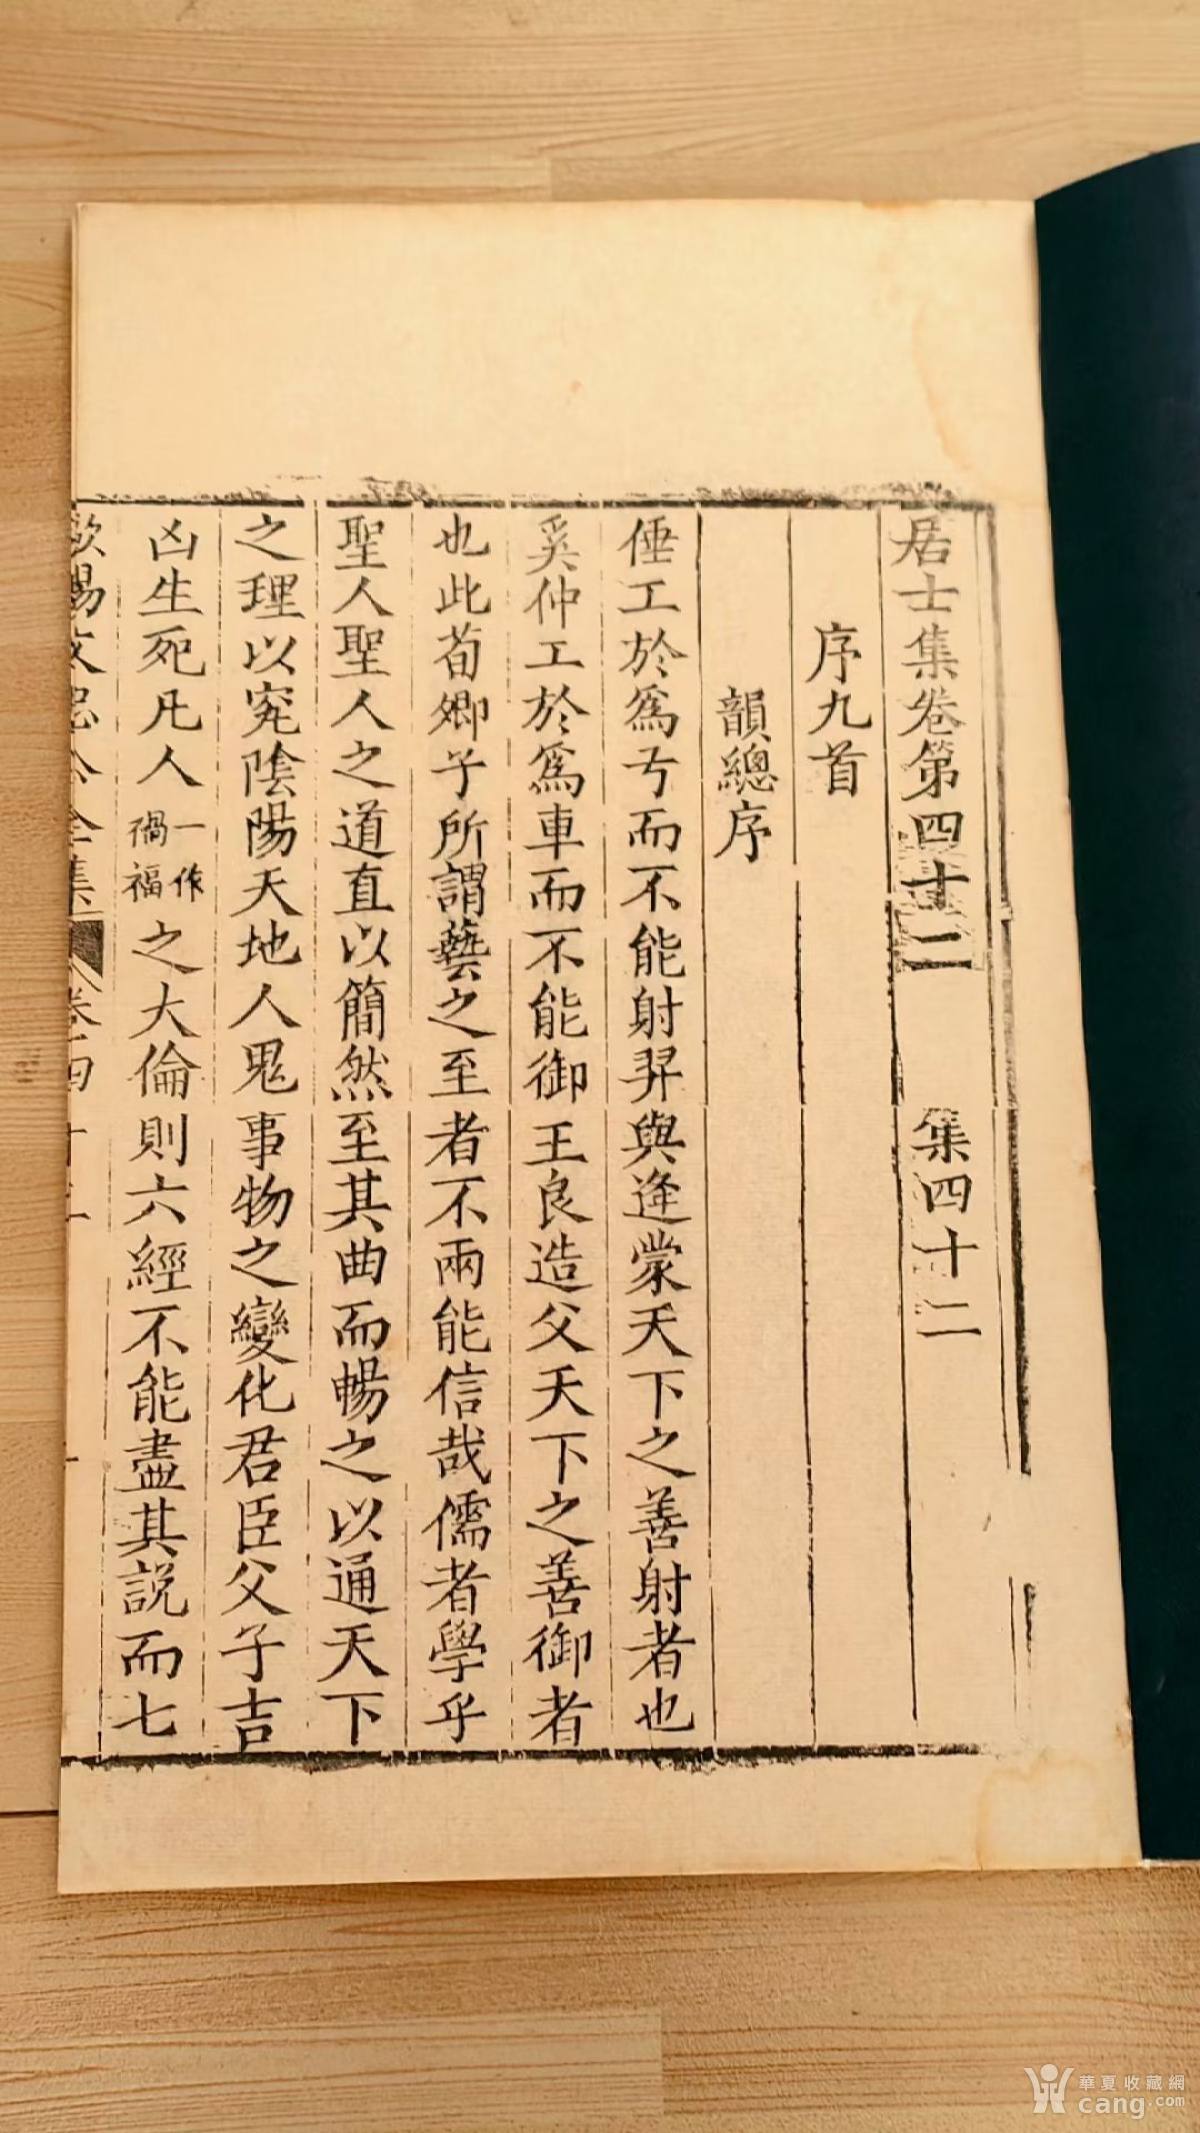 居士集卷第四十二　集四十二
序九首
韻總序
倕工於爲弓而不能射羿與逄蒙天下之善射者也
奚仲工於爲車而不能御王良造父天下之善御者
也此荀卿子所謂藝之至者不兩能信哉儒者學乎
聖人聖人之道直以簡然至其曲而暢之以通天下
之理以究陰陽天地人鬼事物之變化君臣父子吉
凶生死凡人一作禍福之大倫則六經不能盡其說而七
歐陽文忠公全集　卷四十二　一
華夏收藏網
cang.com